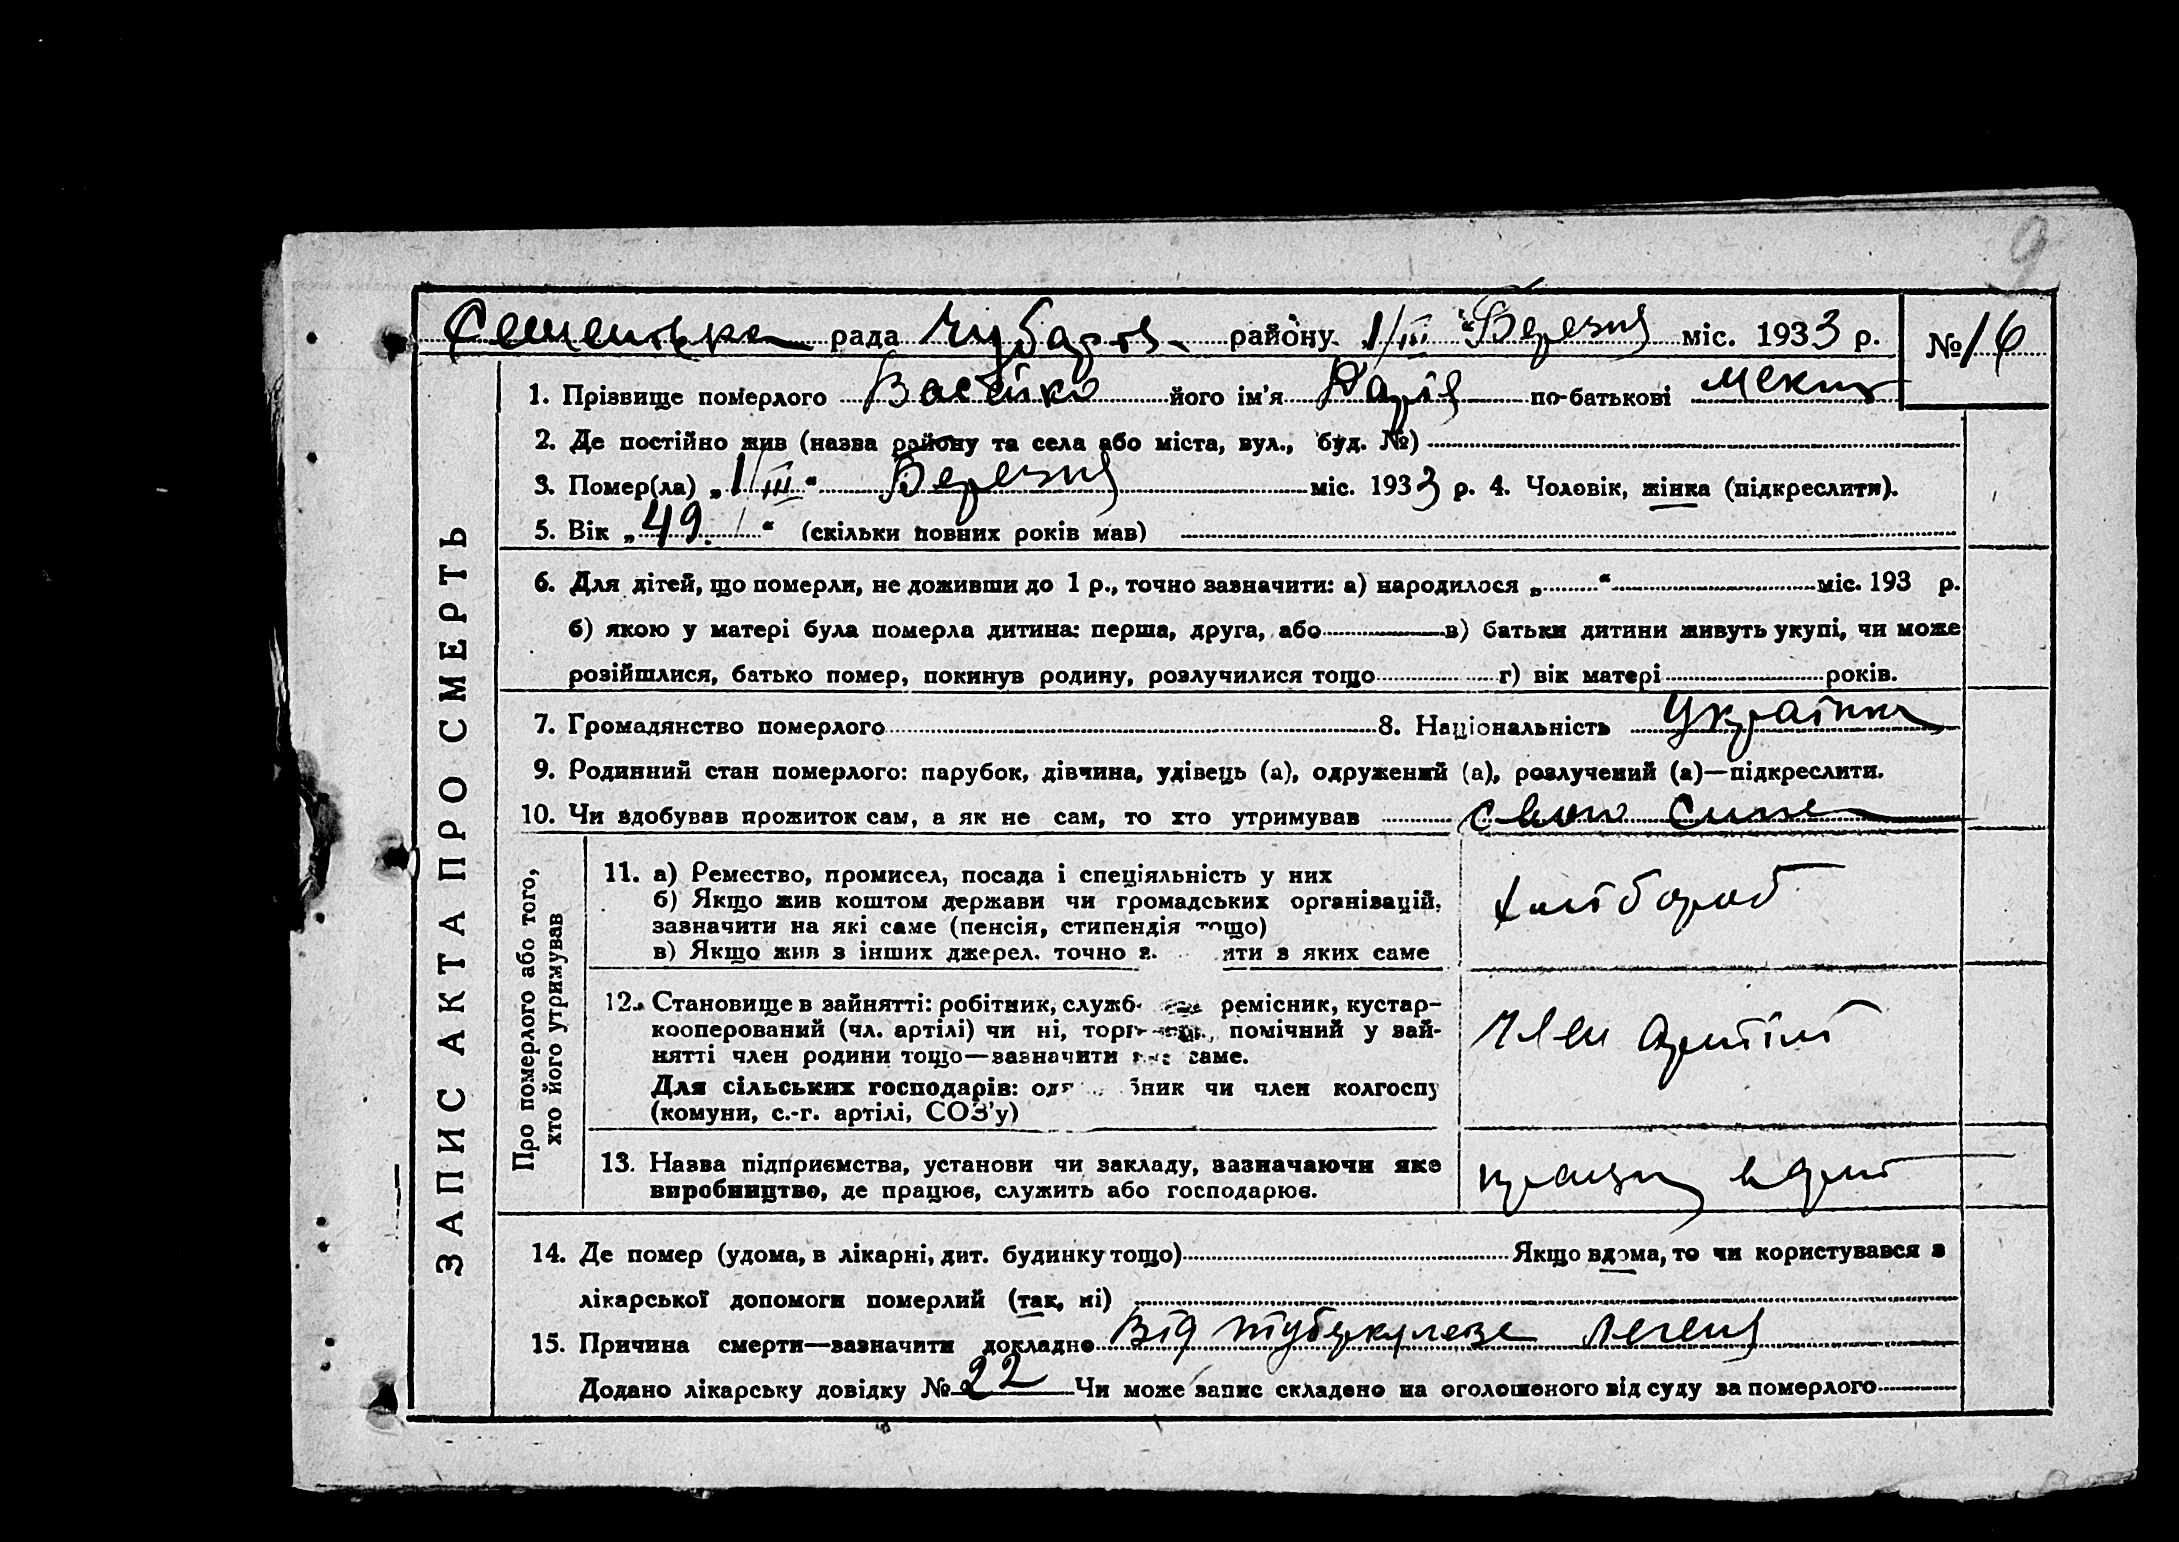 9
Семенівка рада Чубарів. району 1/III „Березня міс. 1933 р. № 16
ЗАПИС АКТА ПРО СМЕРТЬ
1. Прізвище померлого його ім'я Марія по-батькові
2. Де постійно жив (назва району та села або міста, вул., буд. №)
3. Помер(ла) „1/III“ Березня міс. 1933 р. 4. Чоловік, жінка (підкреслити).
5. Вік „49.“ (скільки повних років мав)
6. Для дітей, що померли, не доживши до 1 р., точно зазначити: а) народилося „ “ міс. 193 р.
б) якою у матері була померла дитина: перша, друга, або в) батьки дитини живуть укупі, чи може
розійшлися, батько помер, покинув родину, розлучилися тощо г) вік матері років.
7. Громадянство померлого 8. Національність Українка
9. Родинний стан померлого: парубок, дівчина, удівець (а), одружений (а), розлучений (а)—підкреслити.
10. Чи здобував прожиток сам, а як не сам, то хто утримував
Про померлого або того,
хто його утримував
11. а) Ремество, промисел, посада і спеціяльність у них
б) Якщо жив коштом держави чи громадських організацій,
зазначити на які саме (пенсія, стипендія тощо)
в) Якщо жив з інших джерел. точно з. ити з яких саме
хлібороб
12. Становище в зайнятті: робітник, служб ремісник, кустар-
кооперований (чл. артілі) чи ні, торг помічний у зай-
нятті член родини тощо—зазначити саме.
Для сільських господарів: од бник чи член колгоспу
(комуни, с.-г. артілі, СОЗ'у)
Член артілі
13. Назва підприємства, установи чи закладу, зазначаючи яке
виробництво, де працює, служить або господарює.
працює в арт
14. Де помер (удома, в лікарні, дит. будинку тощо) Якщо вдома, то чи користувався з
лікарської допомоги померлий (так, ні)
15. Причина смерти—зазначити докладно Від туберкулеза легень
Додано лікарську довідку № 22 Чи може запис складено на оголошеного від суду за померлого